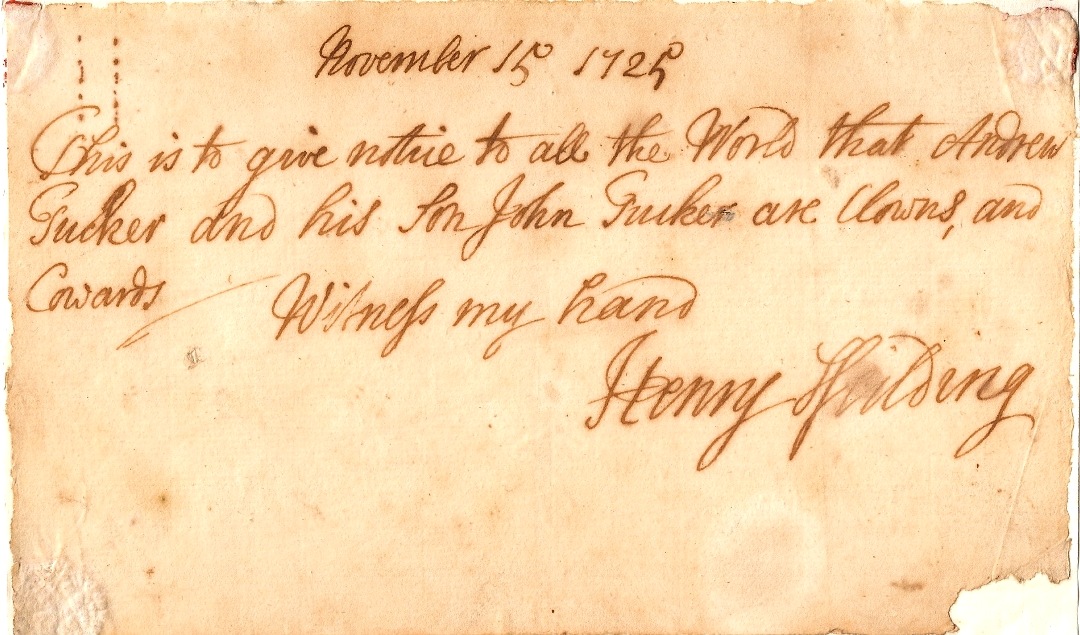 November 15 1725
This is to give notice to all the World that Andrew
Tucker and his Son John Tucker are Clowns, and
Cowards
Witness my hand
Henry Ffielding